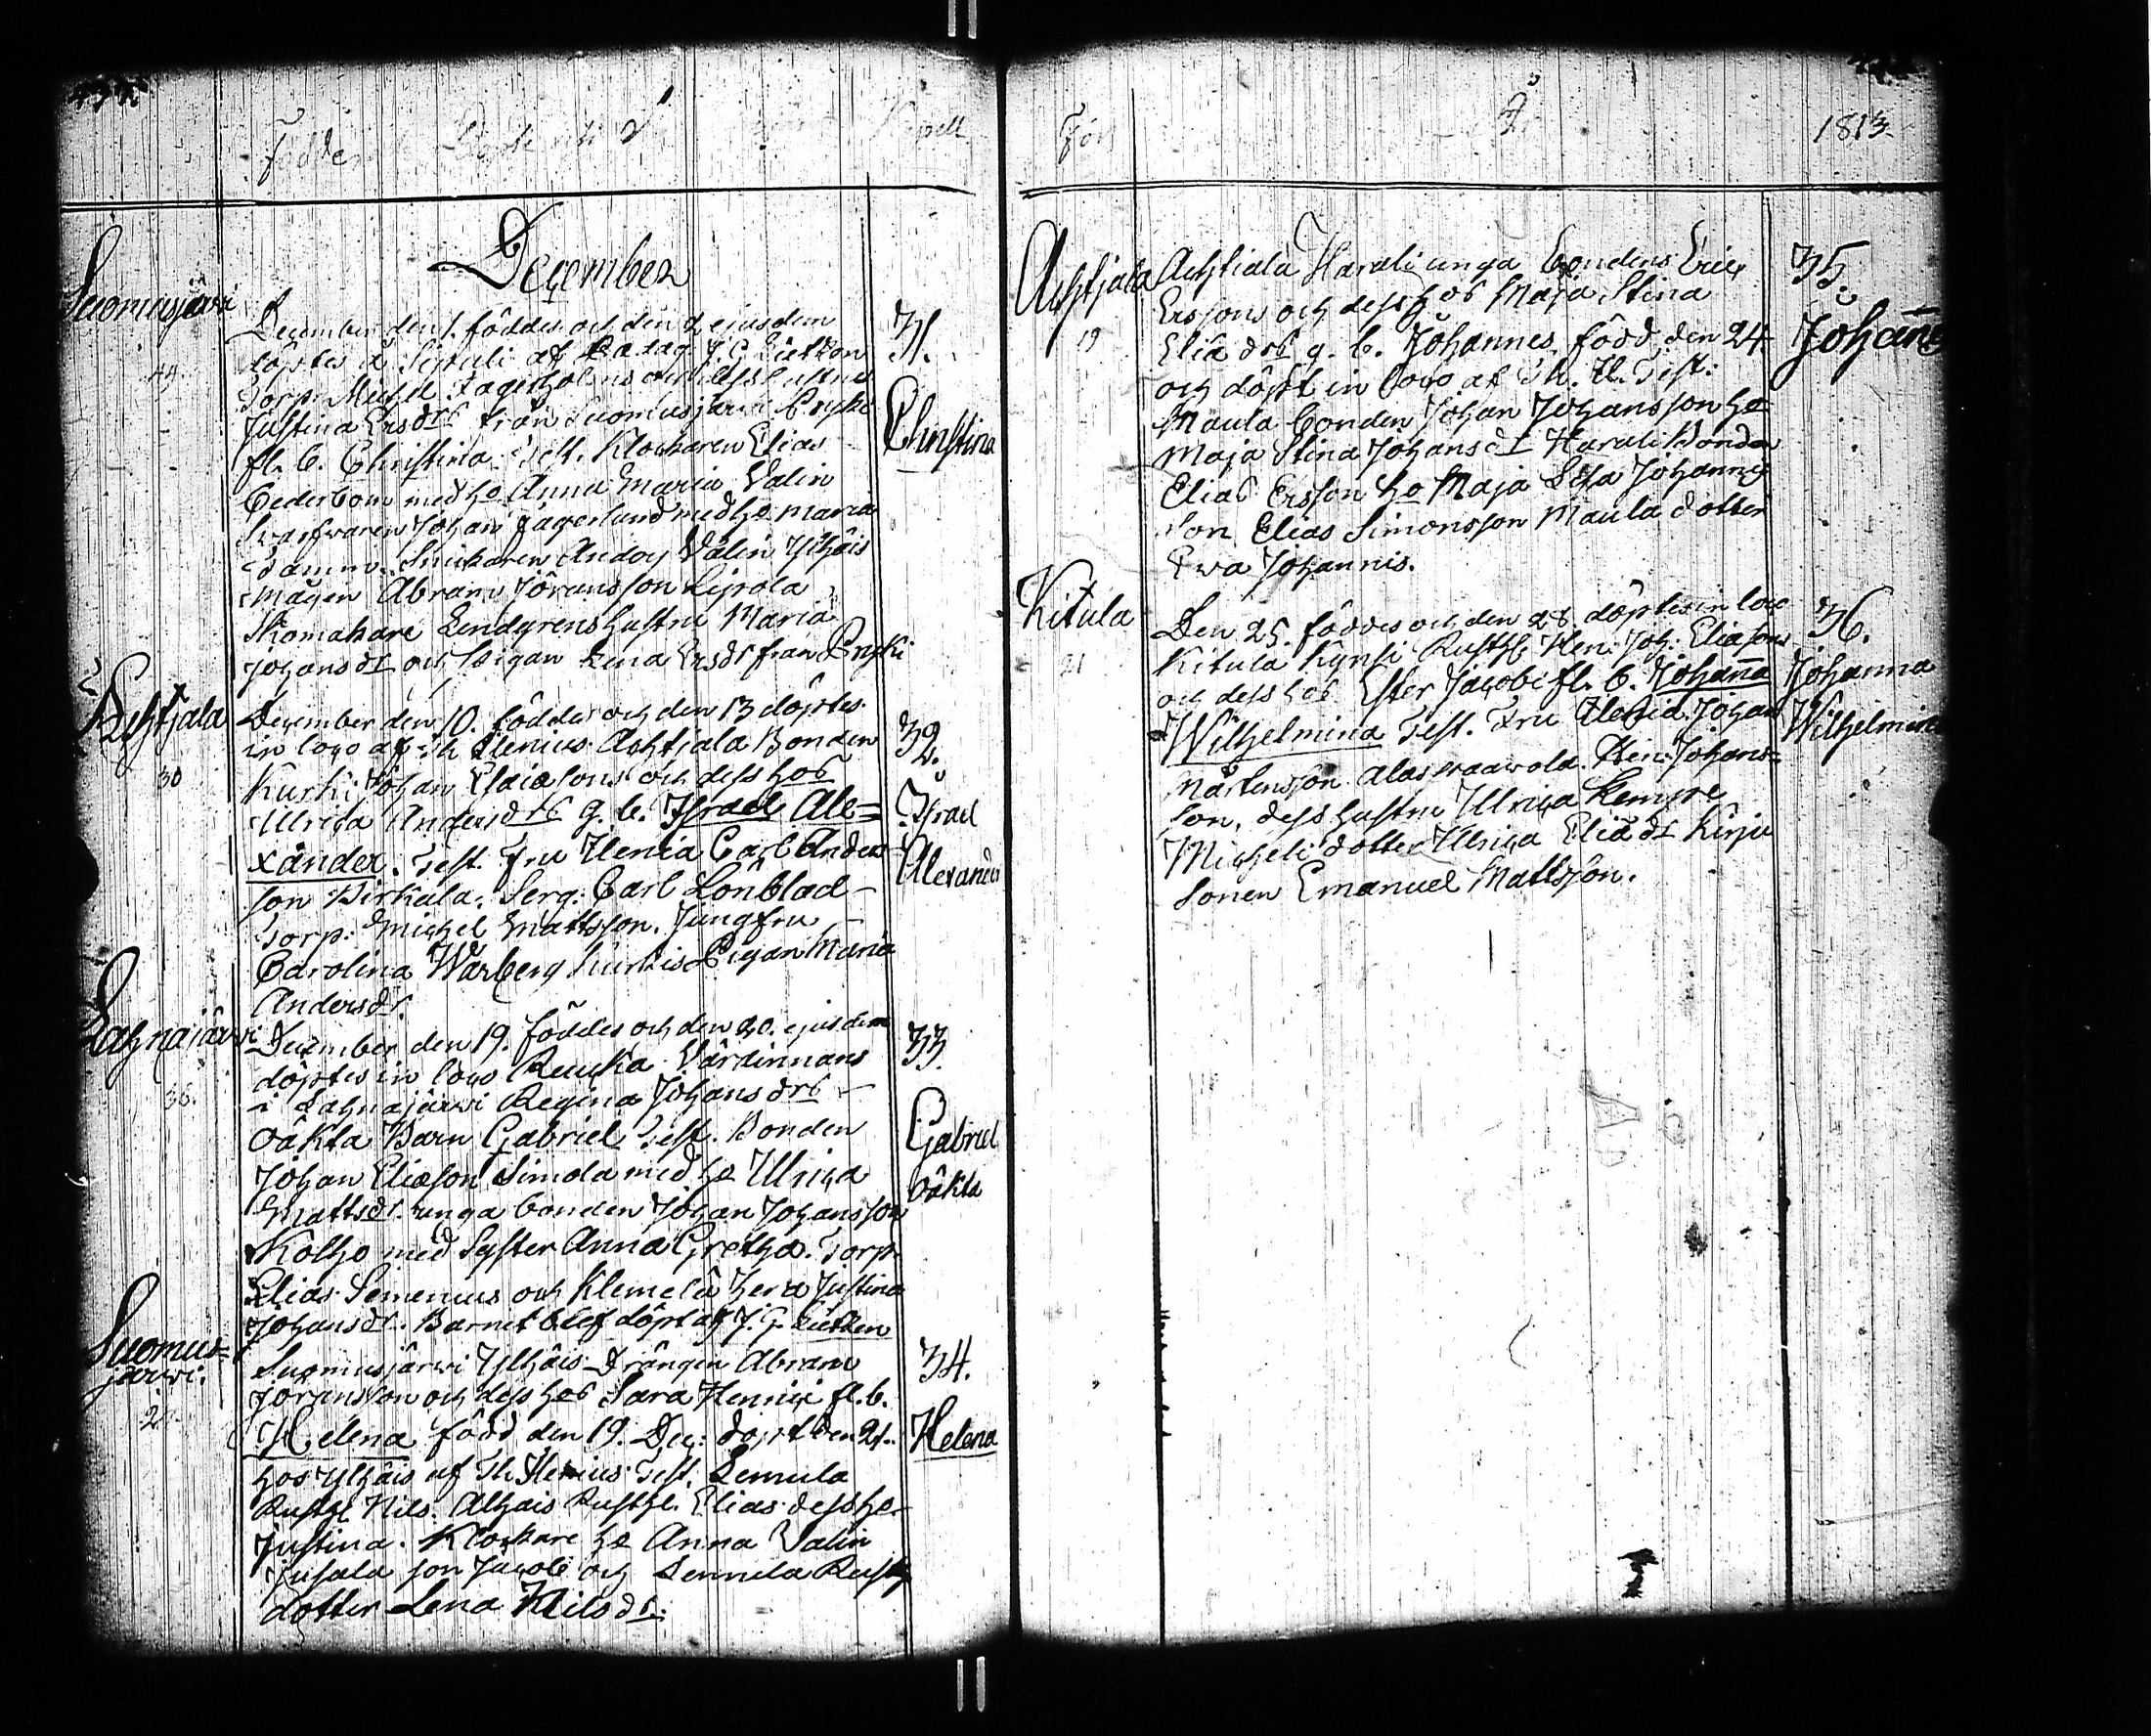 Födde
Kapell
December
Suomusjärvi
44.
December den 1. föddes och den 2 ejusdem
döptes i Sepruli af Padag. J. G. Lietzen
Torp. Michel Fagerholms och dess hustrus
Justina Ersdrs från Suomusjärvi Pryki
fl. b. Christina. Test. Klockaren Elias
Cederbom med ho Anna Maria Valin
Svarfvaren Johan Fagerlund med ho Maria
Snickaren Valin Ylhäis
Mågen Abram Jöransson Lepola
Skomakare Lendgrens hustru Maria
Johansdr och Pigan Lena Ersdr från Pryki
31.
Christina
Achtjala
30
December den 10. föddes och den 13 döptes
in loco af Th. Ilenius Achtjala Bonden
Kurki Johan Elaiasons och dess hos
Ulrica Andersdrs g. b. Israel Ale=
xander. Test. Fru Ilenia Carl Anders
son Pirkula. Serg. Carl Lönblad
Torp: Michel Mattsson. Jungfru
Carolina Warberg Kurkis Pigan Maria
Andersdr.
32.
Israel
Alexander
Lahnajärvi
36.
December den 19. föddes och den 20. ejusdem
döptes in loco Ruuka Värdinnans
i Lahnajärvi Regina Johansdrs
oäkta Barn Gabriel Test. Bonden
Johan Eliæson Simola med ho Ulrica
Mattsdr. unga bonden Johan Johansson
Kolho med Syster Anna Gretha. Torp.
Elias Semenius och Klemelä Justina
Johansdr. Barnet blef döpt af J. G. Lietzen
33.
Gabriel
oäkta
Suomus=
järvi.
2
Suomusjärvi Ylhäis Drängen Abram
Jöransson och dess hos Sara Henrici fl. b.
Helena född den 19. Dec: döpt den 21.
hos Ylhäis af Th. Ilenius Test. Lemula
Rusth. Nils. Alhais Rusth. Elias dess ho
Justina. Klockare ho Anna Valin
son Jacob och Lemula Rusth
dotter Lena Nilsdr.
34.
Helena
1813.
Achtjala
19
Achtiala Harali unga bondens Eric
Erssons och dess hos Maja Stina
Eliä drs g. b. Johannes född den 24
och döpt in loco af Th. Il. Test:
Maula bonden Johan Johansson ho
Maja Stina Johansdr Harali Bonden
Elias Ersson ho Maja Lisa Johannis
Son Elias Simonsson Maula dotter
Ewa Johannis.
35.
Johannes
Kitula
21
Den 25. föddes och den 28. döptes in loco
Kitula Kynsi Rusth. Hen: Joh: Eliasons
och dess hos Ester Jacobi fl. b. Johanna
Wilhelmina Test. Fru Ilenia Johan
Mårtensson Alas Hen: Johans=
son, dess hustru Ulrica
Micheli dotter Ulrica Eliædr Kirju
sonen Emanuel Mattsson.
36.
Johanna
Wilhelmina